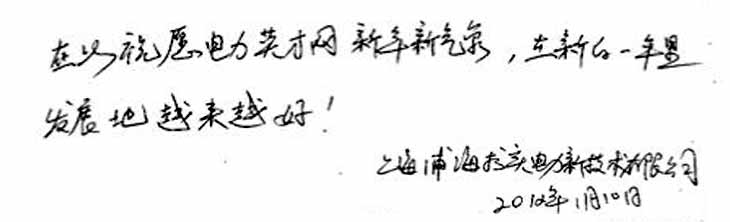 在此祝愿电力英才网新年新气象，在新的一年里
发展地越来越好！
上海浦海求实电力新技术有限公司
2012年1月10日